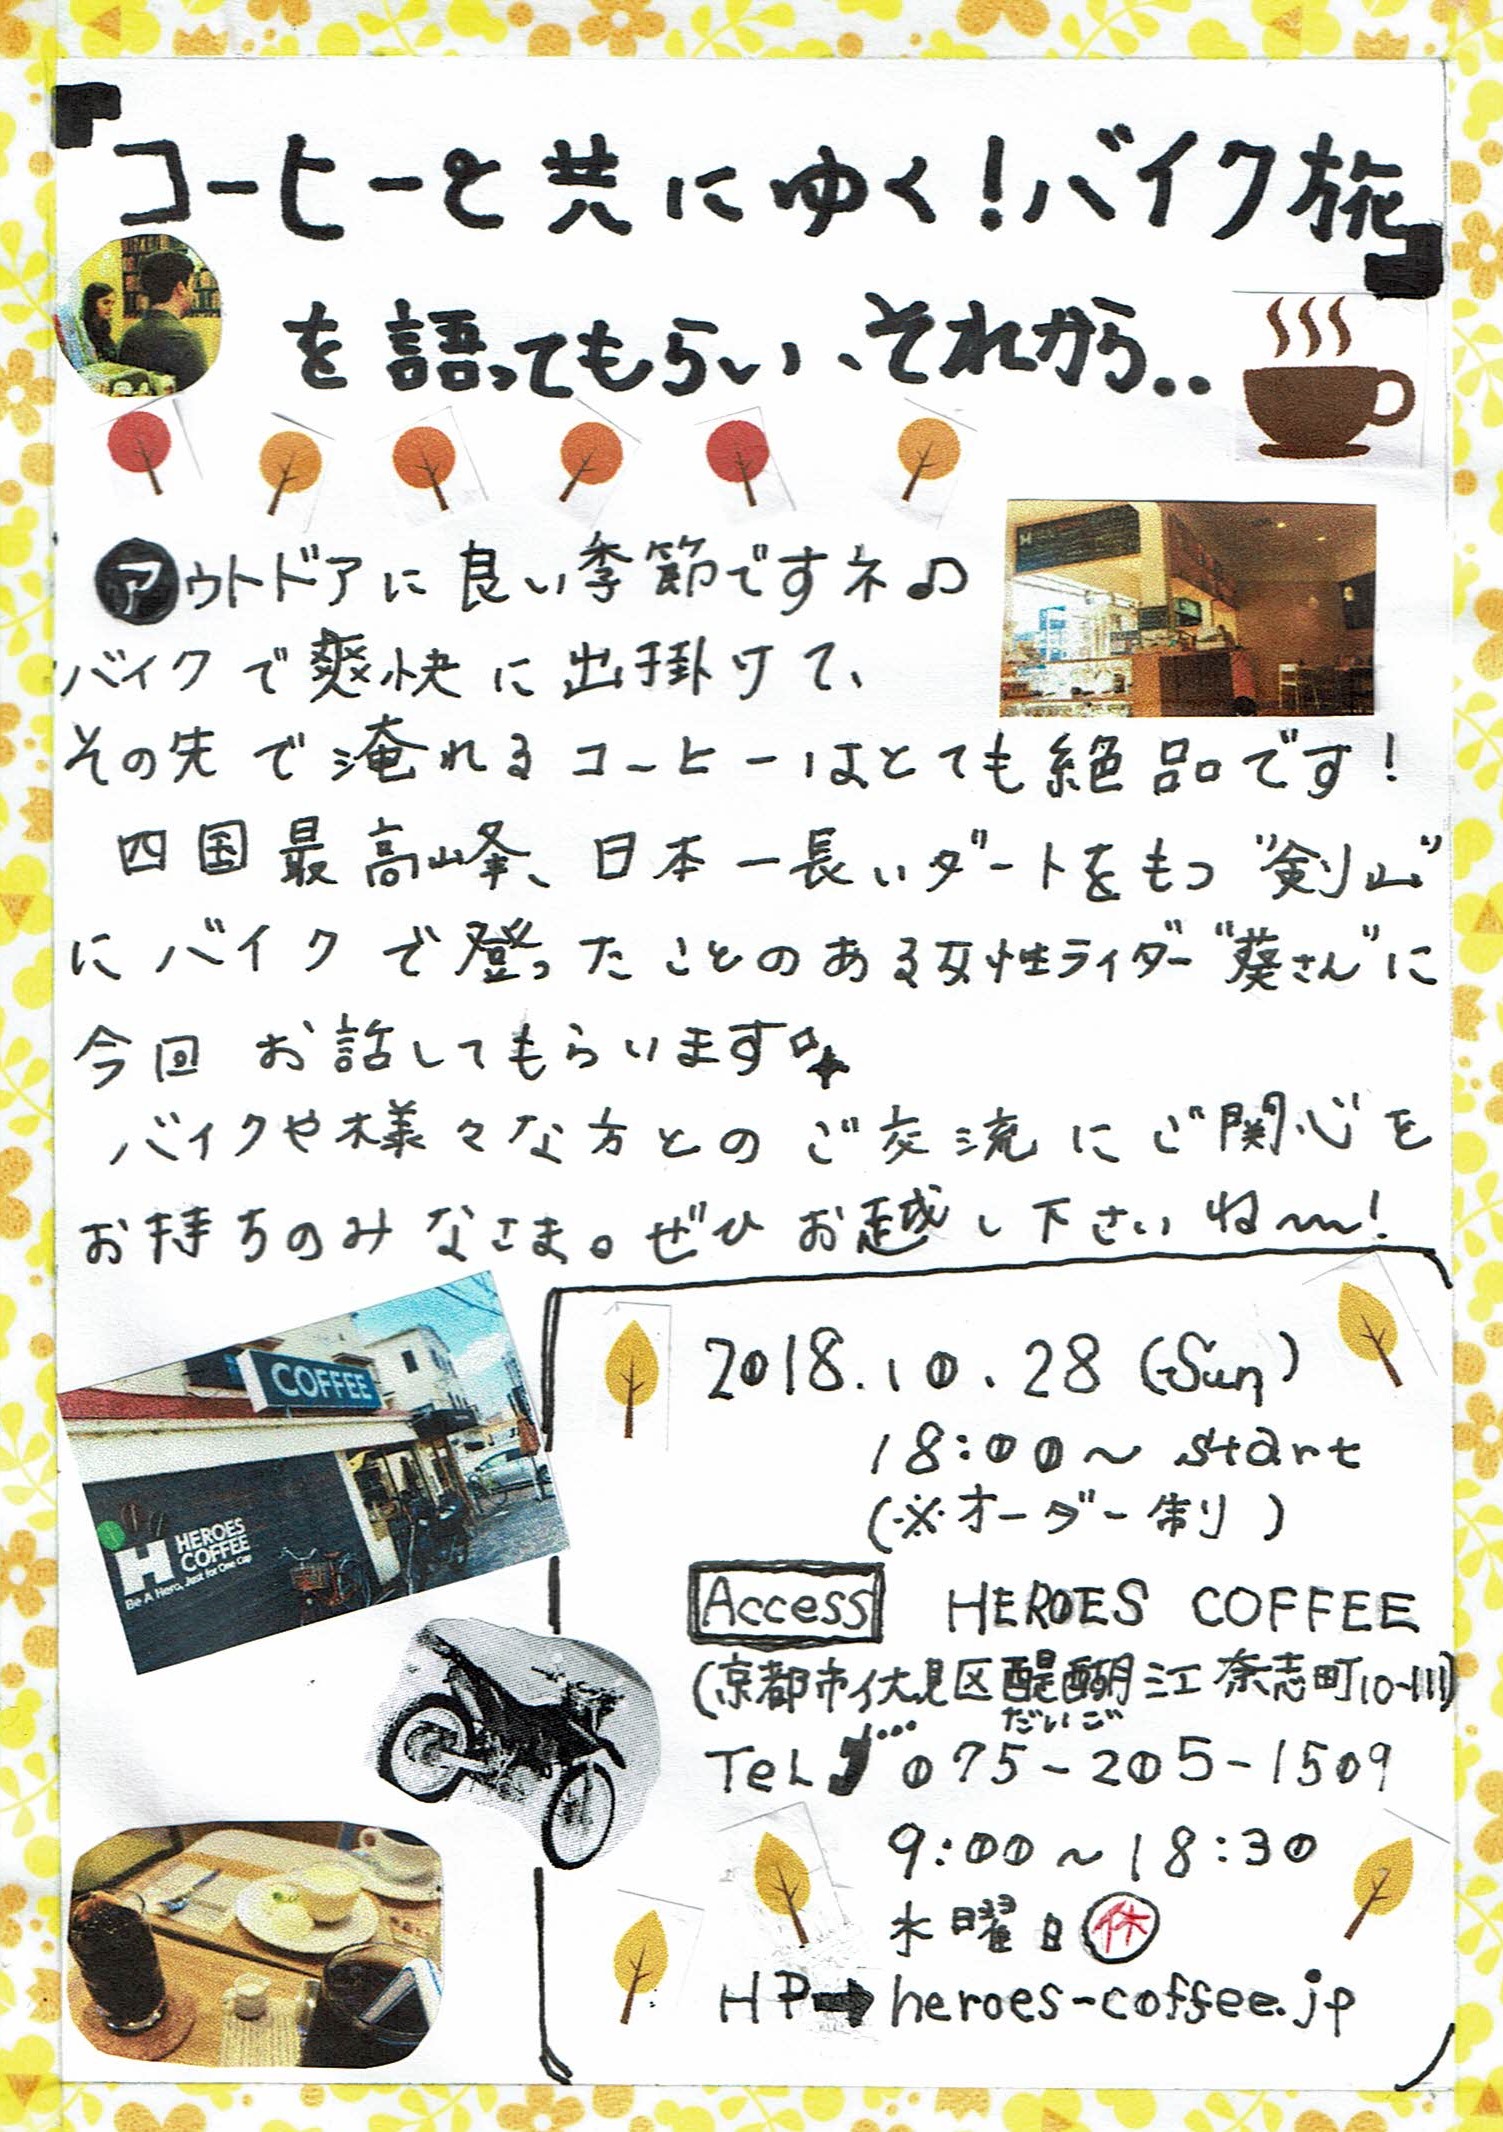 『コーヒーと共にゆく!バイク旅』
を語ってもらい、それから..
アウトドアに良い季節ですネ♫
バイクで爽快に出掛けて、
その先で淹れるコーヒーはとても絶品です!
四国最高峰、日本一長いダートをもつ"剣山"
にバイクで登ったことのある女性ライダー"葵さん"に
今回お話してもらいます。
バイクや様々な方とのご交流にご関心を
お持ちのみなさま。ぜひお越し下さいね〜!
COFFEE
HEROES
COFFEE
Be A Hero, Just for One Cup
2018.10.28(Sun)
18:00〜start
(※オーダー制)
Access HEROES COFFEE
(京都市伏見区醍醐江奈志町10-111)
だいご
TeL 075-205-1509
9:00〜18:30
水曜日㊡
HP➡heroes-coffee.jp